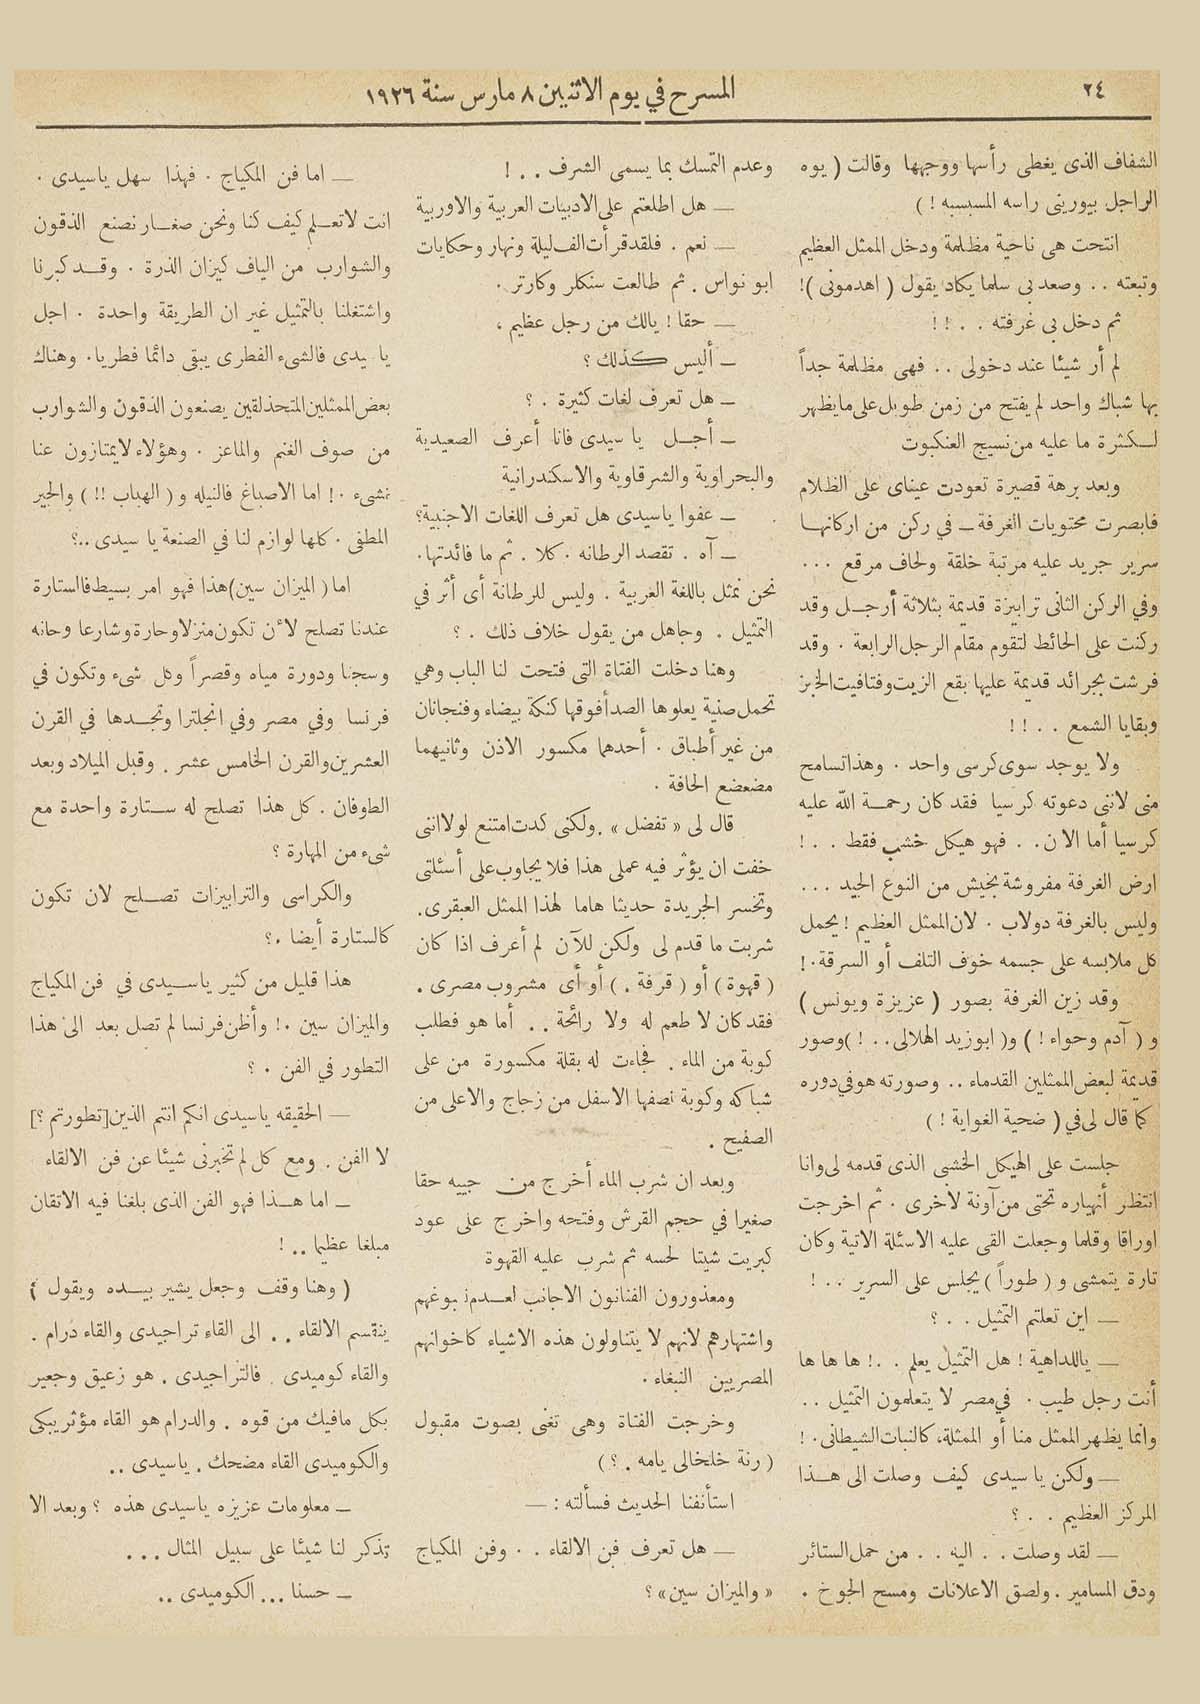 ٢٤
المسرح في يوم الاثنين ٨ مارس سنة ١٩٢٦
الشفاف الذى يغطى رأسها ووجهها وقالت ( يوه
الراجل بيورينى راسه المسبسبه ! )
انتحت هى ناحية مظلمة ودخل الممثل العظيم
وتبعته . . وصعد بى سلما يكاد يقول ( اهدمونى )!
ثم دخل بى غرفته . . ! !
لم أر شيئا عند دخولى . . فهى مظلمة جداً
بها شباك واحد لم يفتح من زمن طويل على ما يظهر
لكثرة ما عليه من نسيج العنكبوت
وبعد برهة قصيرة تعودت عيناى على الظلام
فابصرت محتويات الغرفة ــ في ركن من اركانها
سرير جريد عليه مرتبة خلقة ولحاف مرقع . . .
وفي الركن الثانى ترابيزة قديمة بثلاثة أرجل وقد
ركنت على الحائط لتقوم مقام الرجل الرابعة . وقد
فرشت بجرائد قديمة عليها بقع الزيت وفتافيت الخبز
وبقايا الشمع . . ! !
ولا يوجد سوى كرسى واحد . وهذا تسامح
منى لاننى دعوته كرسيا فقد كان رحمة الله عليه
كرسيا أما الان . . فهو هيكل خشب فقط . . !
ارض الغرفة مفروشة بخيش من النوع الجيد . . .
وليس بالغرفة دولاب . لان الممثل العظيم ! يحمل
كل ملابسه على جسمه خوف التلف أو السرقة . !
وقد زين الغرفة بصور ( عزيزة ويونس )
و ( آدم وحواء ! ) و( ابوزيد الهلالى . . ! ) وصور
قديمة لبعض الممثلين القدماء . . وصورته هو في دوره
كما قال لى في ( ضحية الغواية ! )
جلست على الهيكل الخشبى الذى قدمه لى وانا
انتظر أنهياره تحتى من آونة لاخرى . ثم اخرجت
اوراقا وقلما وجعلت القى عليه الاسئلة الاتية وكان
تارة يتمشى و ( طوراً ) يجلس على السرير . . !
ــ اين تعلتم التمثيل . . ؟
ــ ياللداهية ! هل التمثيل يعلم . . ! ها ها ها
أنت رجل طيب . في مصر لا يتعلمون التمثيل . .
وانما يظهر الممثل منا أو الممثلة، كالنبات الشيطانى . !
ــ ولكن يا سيدى كيف وصلت الى هذا
المركز العظيم . . ؟
ــ لقد وصلت . . اليه . . من حمل الستائر
ودق المسامير . ولصق الاعلانات ومسح الجوخ .
وعدم التمسك بما يسمى الشرف . . !
ــ هل اطلعتم على الادبيات العربية والاوربية
ــ نعم . فلقد قرأت الف ليلة ونهار وحكايات
ابو نواس . ثم طالعت سنكلر وكارتر .
ــ حقا ! يالك من رجل عظيم ،
ــ أليس كذلك ؟
ــ هل تعرف لغات كثيرة . ؟
ــ أجل يا سيدى فانا أعرف الصعيدية
والبحراوية والشرقاوية والاسكندرانية
ــ عفوا ياسيدى هل تعرف اللغات الاجنبية؟
ــ آه . تقصد الرطانه . كلا . ثم ما فائدتها.
نحن نمثل باللغة الغربية . وليس للرطانة أى أثر في
التمثيل . وجاهل من يقول خلاف ذلك . ؟
وهنا دخلت الفتاة التى فتحت لنا الباب وهي
تحمل صنية يعلوها الصدأ فوقها كنكة بيضاء وفنجانان
من غير أطباق . أحدهما مكسور الاذن وثانيهما
مضعضع الحافة .
قال لى « تفضل » . ولكنى كدت امتنع لولا اننى
خفت ان يؤثر فيه عملى هذا فلا يجاوب على أسئلتى
وتخسر الجريدة حديثا هاما لهذا الممثل العبقرى.
شربت ما قدم لى ولكن للآن لم أعرف اذا كان
( قهوة ) أو ( قرفة . ) أو أى مشروب مصرى .
فقد كان لا طعم له ولا رائحة . . أما هو فطلب
كوبة من الماء . فجاءت له بقلة مكسورة من على
شباكه وكوبة نصفها الاسفل من زجاج والاعلى من
الصفيح .
وبعد ان شرب الماء أخرج من جيبه حقا
صغيرا في حجم القرش وفتحه واخرج على عود
كبريت شيئا لحسه ثم شرب عليه القهوة
ومعذورون الفنانون الاجانب لعدم نبوغهم
واشتهارهم لانهم لا يتناولون هذه الاشياء كاخوانهم
المصريين النبغاء .
وخرجت الفتاة وهى تغنى بصوت مقبول
( رنة خلخالى يامه . ؟ )
استأنفنا الحديث فسألته : ــ
ــ هل تعرف فن الالقاء . . وفن المكياج
« والميزان سين» ؟
ــ اما فن المكياج . فهذا سهل ياسيدى .
انت لا تعلم كيف كنا ونحن صغار نصنع الذقون
والشوارب من الياف كيزان الذرة . وقد كبرنا
واشتغلنا بالتمثيل غير ان الطريقة واحدة . اجل
يا يدى فالشىء الفطرى يبقى دائما فطريا . وهناك
بعض الممثلين المتحذلقين يصنعون الذقون والشوارب
من صوف الغنم والماعز . وهؤلاء لايمتازون عنا
بشىء . ! اما الاصباغ فالنيله و ( الهباب !! ) والجير
المطفى . كلها لوازم لنا في الصنعة يا سيدى ..؟
اما ( الميزان سين ) هذا فهو امر بسيط فالستارة
عندنا تصلح لأن تكون منزلا وحارة وشارعا وحانه
وسجنا ودورة مياه وقصراً وكل شىء وتكون في
فرنسا وفي مصر وفي انجلترا وتجدها في القرن
العشرين والقرن الخامس عشر . وقبل الميلاد وبعد
الطوفان . كل هذا تصلح له ستارة واحدة مع
شىء من المهارة ؟
والكراسى والترابيزات تصلح لان تكون
كالستارة أيضا .؟
هذا قليل من كثير ياسيدى في فن المكياج
والميزان سين . ! وأظن فرنسا لم تصل بعد الى هذا
التطور في الفن . ؟
ــ الحقيقه ياسيدى انكم انتم الذين [تطورتم ؟]
لا الفن . ومع كل لم تخبرنى شيئا عن فن الالقاء
ــ اما هذا فهو الفن الذى بلغنا فيه الاتقان
مبلغا عظيما . . !
( وهنا وقف وجعل يشير بيده ويقول )
ينقسم الالقاء . . الى القاء تراجيدى والقاء درام .
والقاء كوميدى . فالتراجيدى . هو زعيق وجعير
بكل مافيك من قوه . والدرام هو القاء مؤثر يبكى
والكوميدى القاء مضحك . ياسيدى . .
ــ معلومات عزيزه ياسيدى هذه ؟ وبعد الا
تذكر لنا شيئا على سبيل المثال . . .
ــ حسنا ... الكوميدى . .